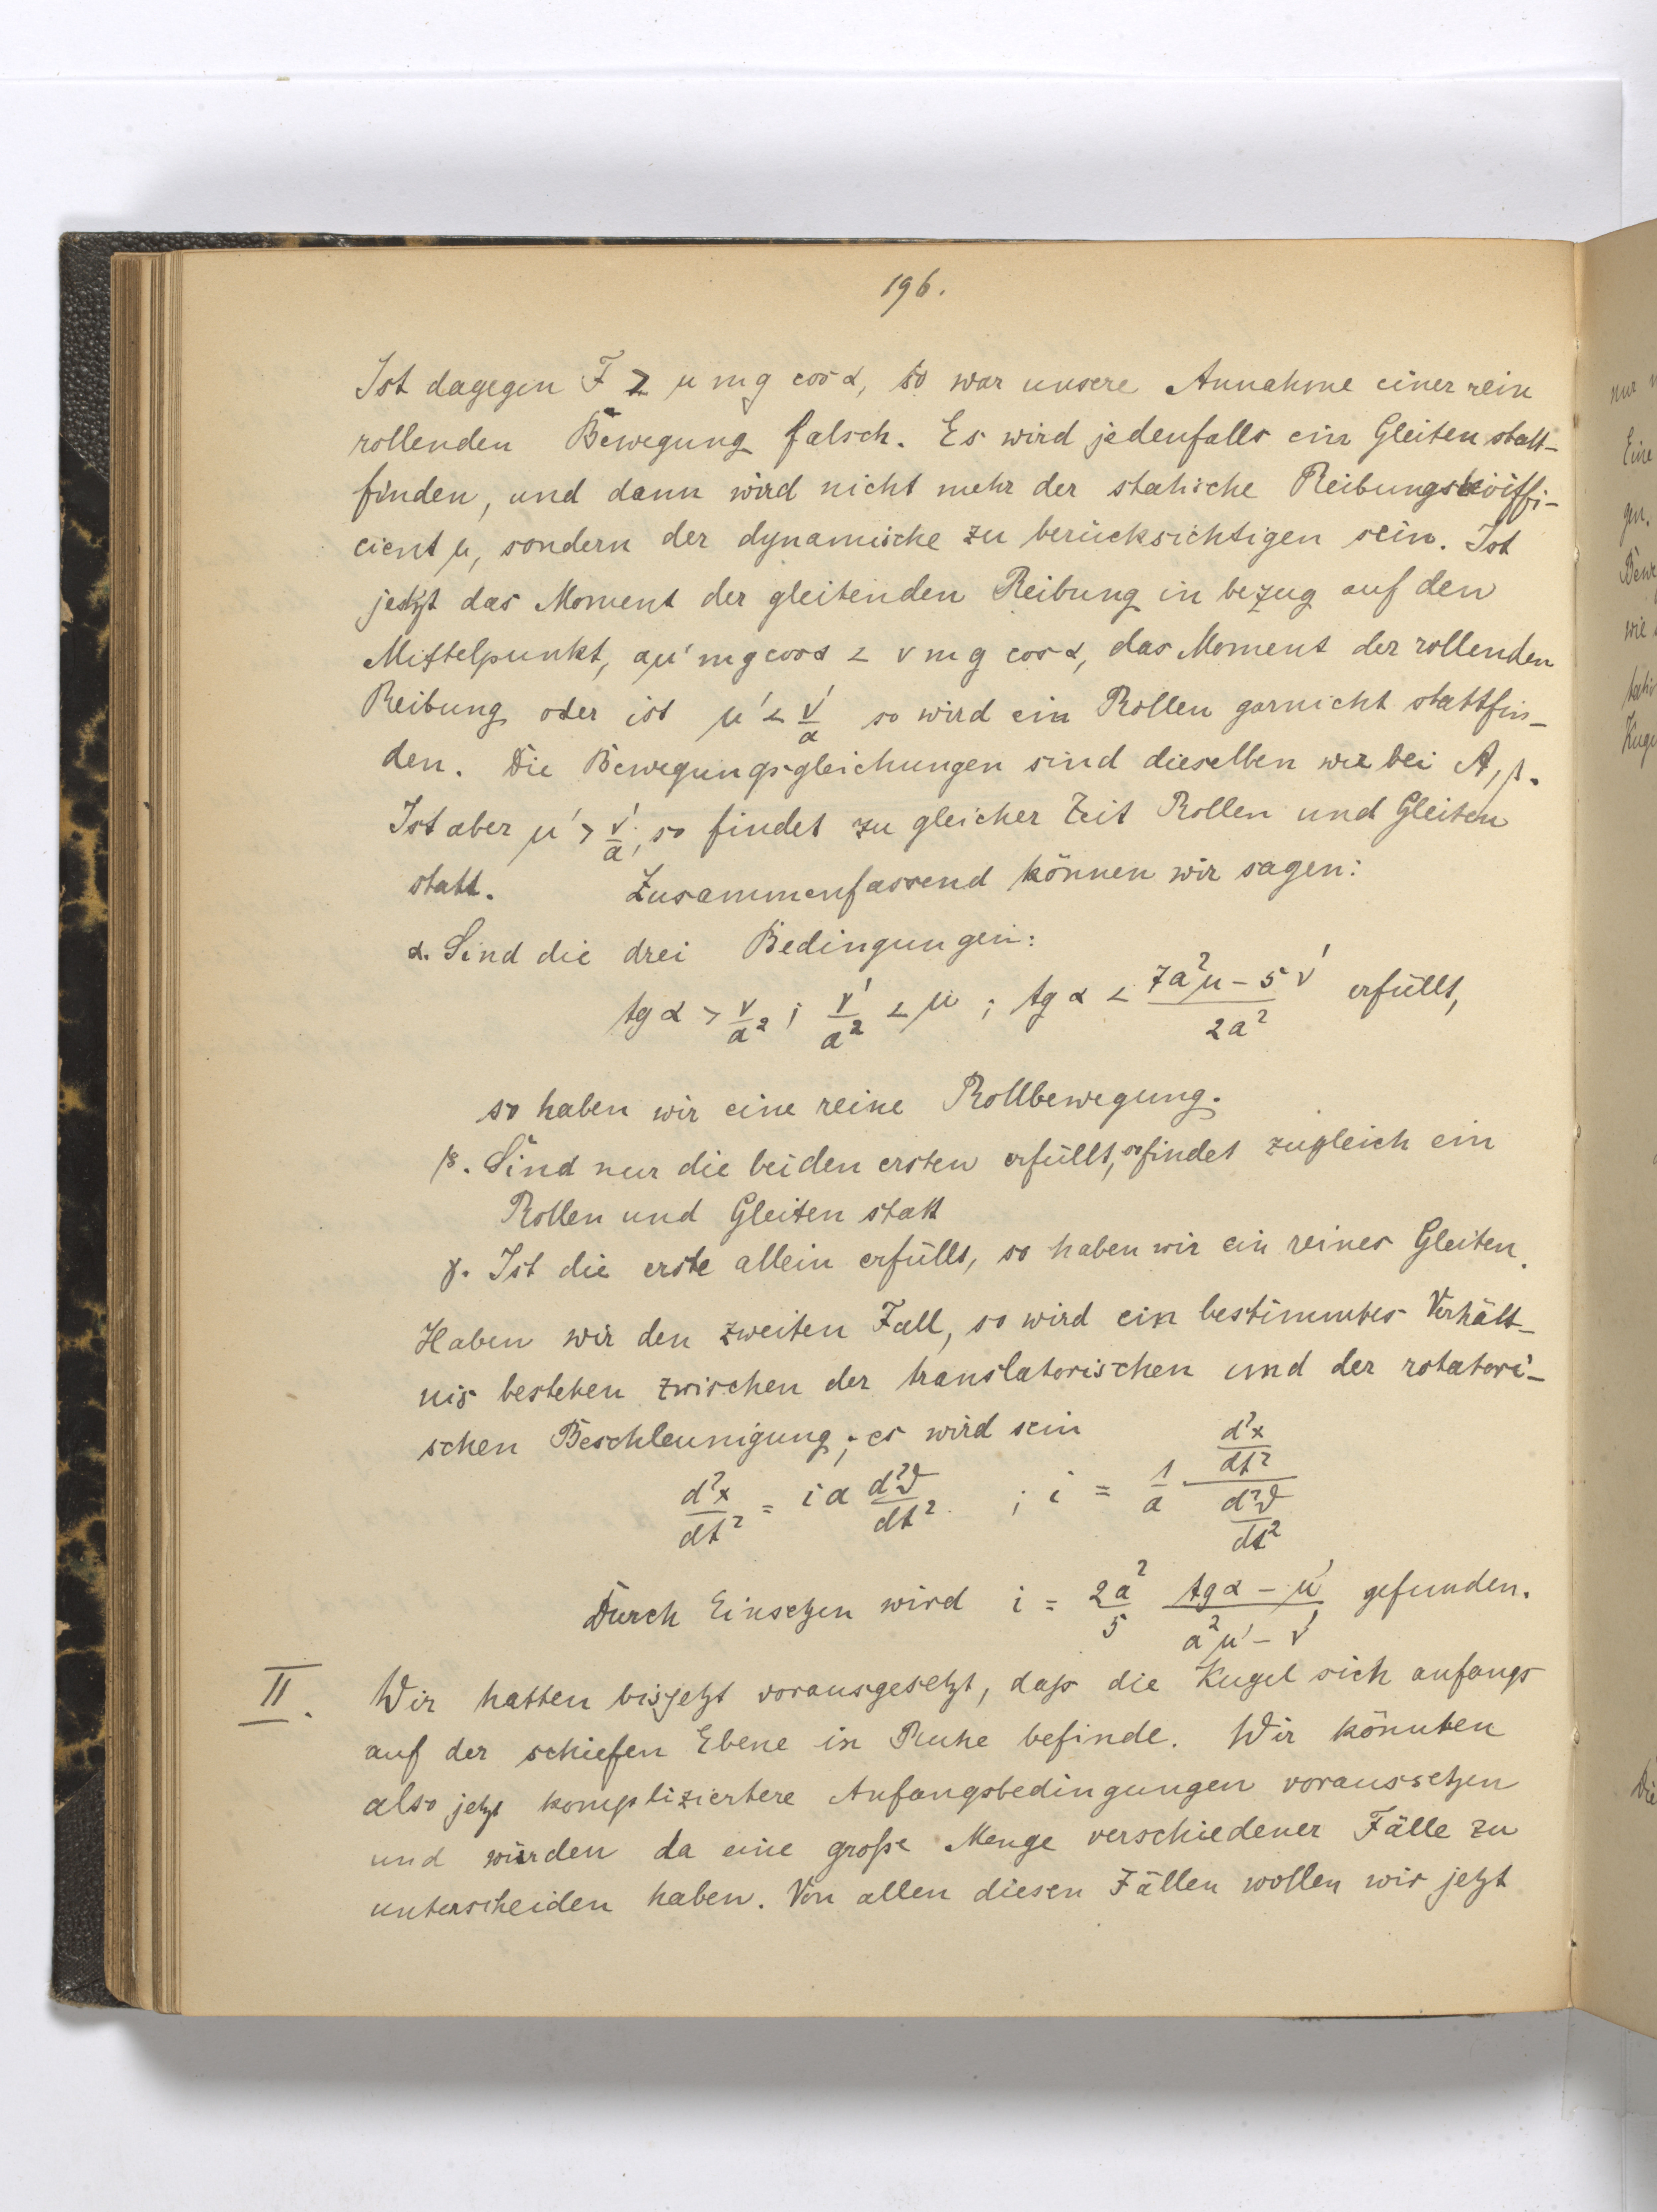 196.
Ist dagegen F > μ m g cos α, so war unsere Annahme einer rein
rollenden Bewegung falsch. Es wird jedenfalls ein Gleiten statt-
finden, und dann wird nicht mehr der statische Reibungskoëffi-
cient μ, sondern der dynamische zu berücksichtigen sein. Ist
jetzt das Moment der gleitenden Reibung in bezug auf den
Mittelpunkt, aμ' m g cos α < ν m g cos α, das Moment der rollenden
Reibung oder ist μ' < ν'/a so wird ein Rollen garnicht stattfin-
den. Die Bewegungsgleichungen sind dieselben wie bei A, β.
Ist aber μ' > ν'/a, so findet zu gleicher Zeit Rollen und Gleiten
statt. Zusammenfassend können wir sagen:
α. Sind die drei Bedingungen:
tg α > ν/a² ; ν'/a² < μ ; tg α < (7a²μ - 5ν')/2a² erfüllt,
so haben wir eine reine Rollbewegung.
β. Sind nur die beiden ersten erfüllt, so findet zugleich ein
Rollen und Gleiten statt
γ. Ist die erste allein erfüllt, so haben wir ein reines Gleiten.
Haben wir den zweiten Fall, so wird ein bestimmtes Verhält-
nis bestehen zwischen der translatorischen und der rotatori-
schen Beschleunigung; es wird sein
d²x/dt² = i a d²ϑ/dt² ; i = 1/a (d²x/dt²)/(d²ϑ/dt²)
Durch Einsetzen wird i = 2a²/5 (tg α - μ')/(a²μ' - ν') gefunden.
II. Wir hatten bisjetzt vorausgesetzt, daß die Kugel sich anfangs
auf der schiefen Ebene in Ruhe befinde. Wir könnten
also jetzt kompliziertere Anfangsbedingungen voraussetzen
und würden da eine große Menge verschiedener Fälle zu
unterscheiden haben. Von allen diesen Fällen wollen wir jetzt
nur
Eine
gen.
wie
Kuge
Die